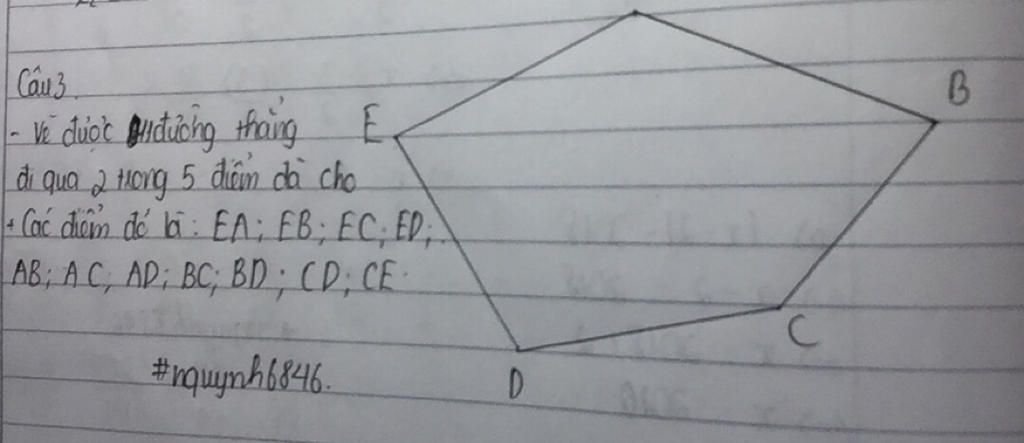 Câu 3
- Vẽ được đường thẳng
đi qua 2 trong 5 điểm đã cho
+ Các điểm đó là: EA; EB; EC; ED;
AB; AC; AD; BC; BD; CD; CE.
#nquynh6846.
E
B
C
D